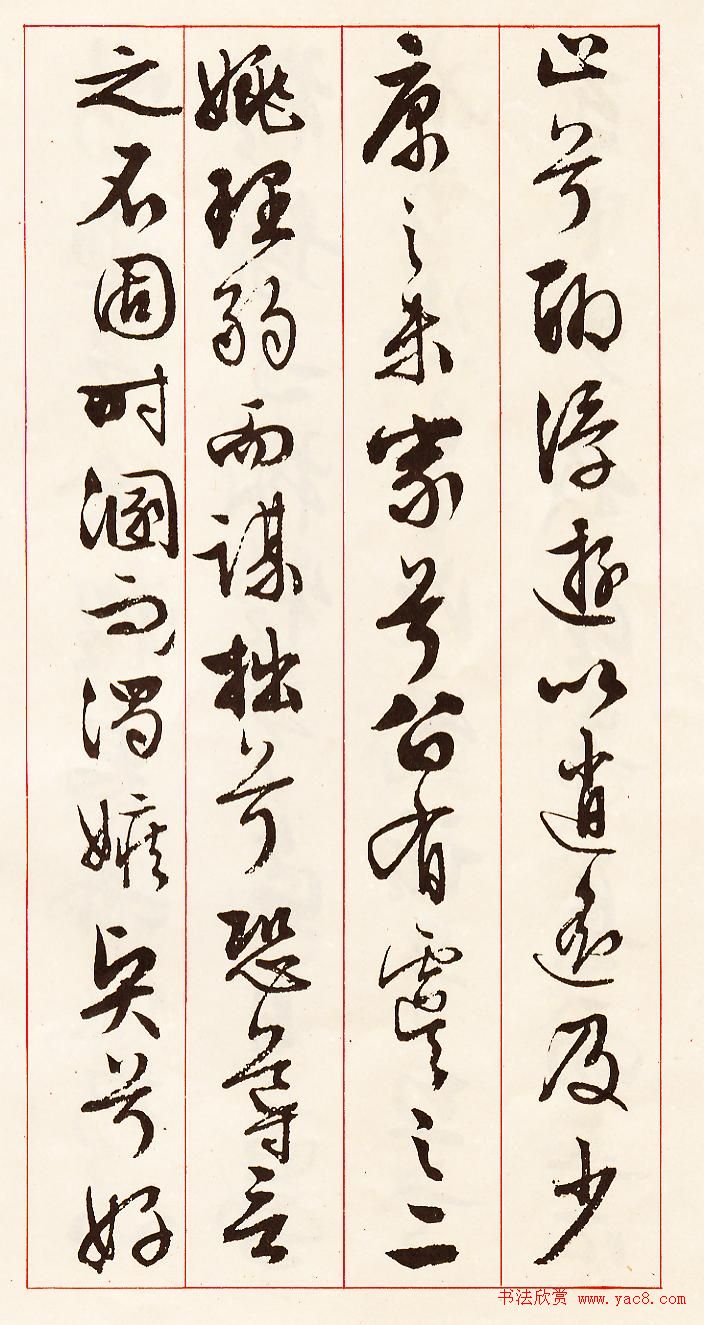 止兮聊浮遊以逍遙及少
康之未家兮留有虞之二
姚理弱而謀拙兮恐導言
之不固时溷而濁嫉賢兮好
书法欣赏 www.yac8.com